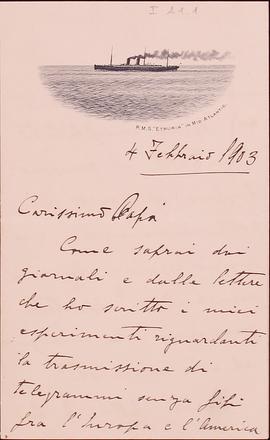 I 1 1 1
R.M.S. "ETRURIA" IN MID ATLANTIC.
4 Febbraio 1903
Carissimo Papà
Come saprai dai
giornali e dalle lettere
che ho scritto i miei
esperimenti riguardanti
la trasmissione di
telegrammi senza fili
fra l'Europa e l'America